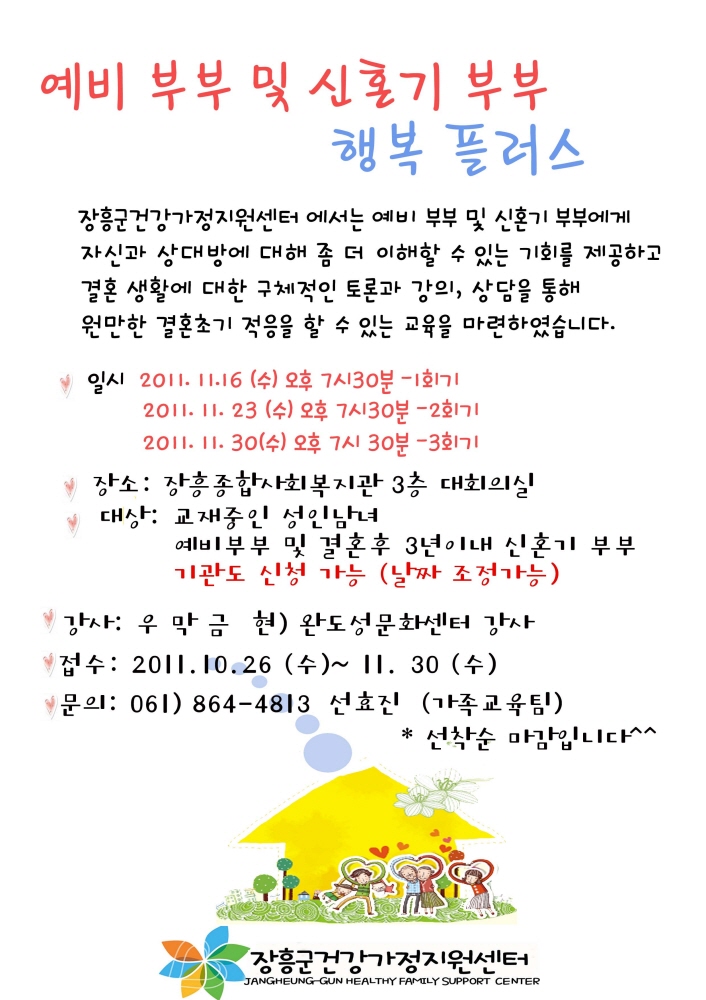 예비 부부 및 신혼기 부부
행복 플러스
장흥군건강가정지원센터 에서는 예비 부부 및 신혼기 부부에게
자신과 상대방에 대해 좀 더 이해할 수 있는 기회를 제공하고
결혼 생활에 대한 구체적인 토론과 강의, 상담을 통해
원만한 결혼초기 적응을 할 수 있는 교육을 마련하였습니다.
일시 2011. 11.16 (수) 오후 7시30분 -1회기
2011. 11. 23 (수) 오후 7시30분 -2회기
2011. 11. 30(수) 오후 7시 30분 -3회기
장소: 장흥종합사회복지관 3층 대회의실
대상: 교재중인 성인남녀
예비부부 및 결혼후 3년이내 신혼기 부부
기관도 신청 가능 (날짜 조정가능)
강사: 우 막 금 현) 완도성문화센터 강사
접수: 2011.10.26 (수)~ 11. 30 (수)
문의: 061) 864-4813 선효진 (가족교육팀)
* 선착순 마감입니다^^
장흥군건강가정지원센터
JANGHEUNG-GUN HEALTHY FAMILY SUPPORT CENTER